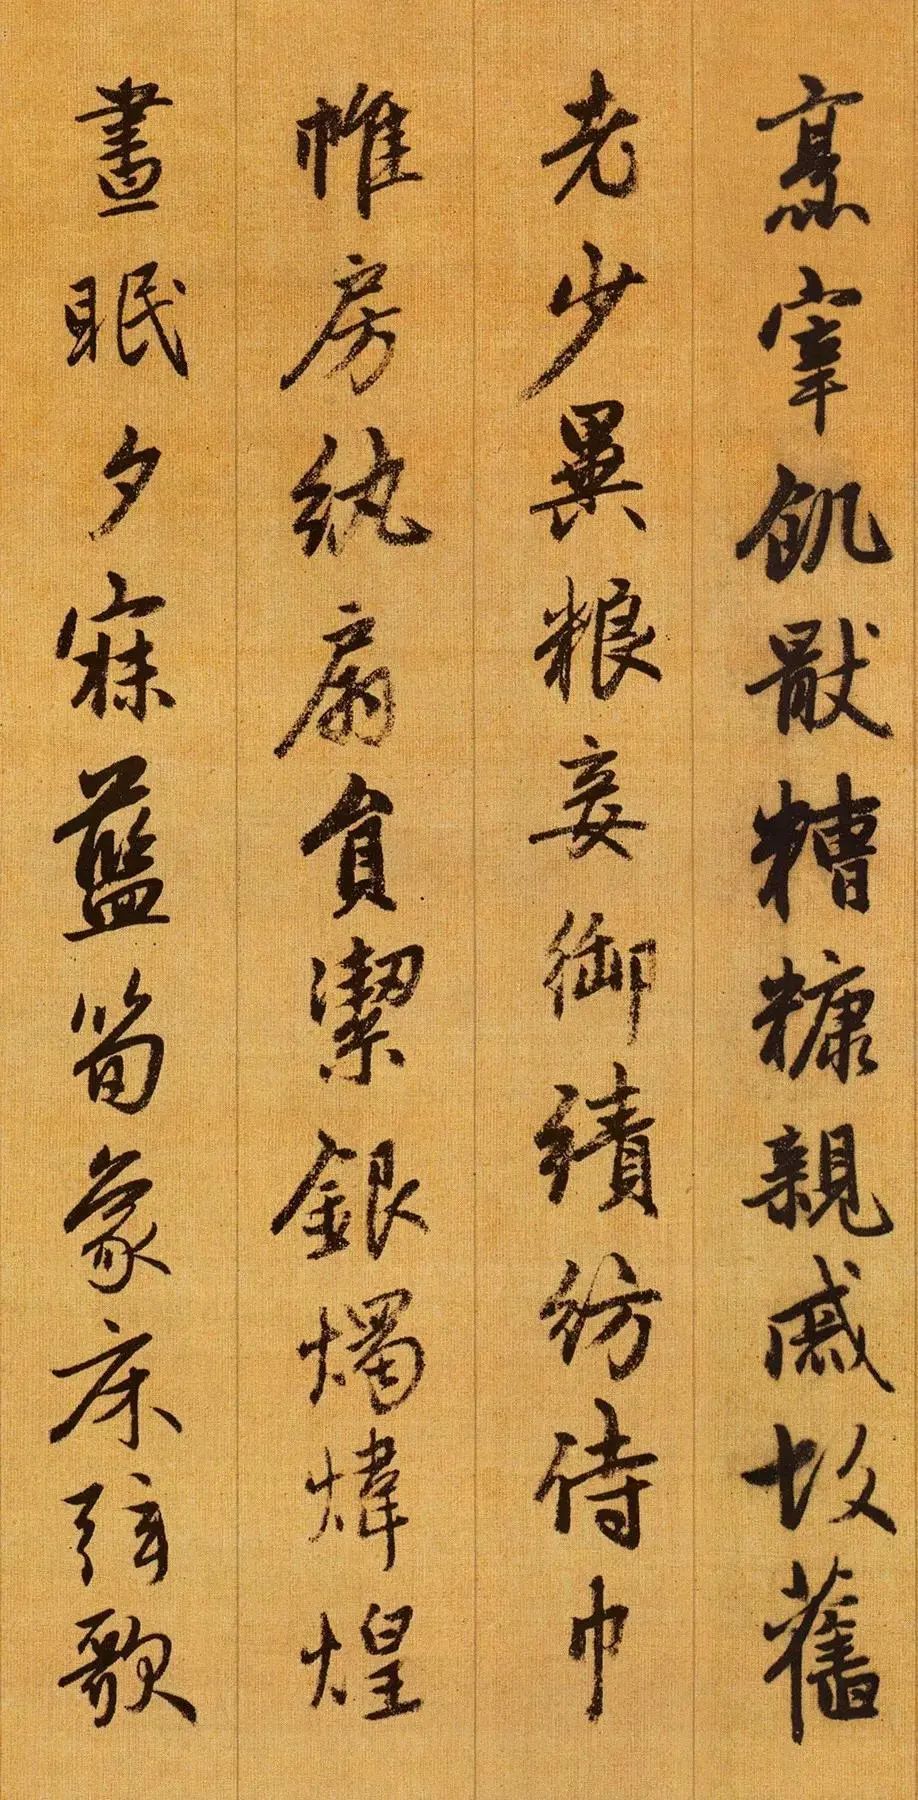 烹宰飢猒糟糠親戚故舊
老少異粮妾御績紡侍巾
帷房紈扇員潔銀燭煒煌
晝眠夕寐藍筍象床弦歌